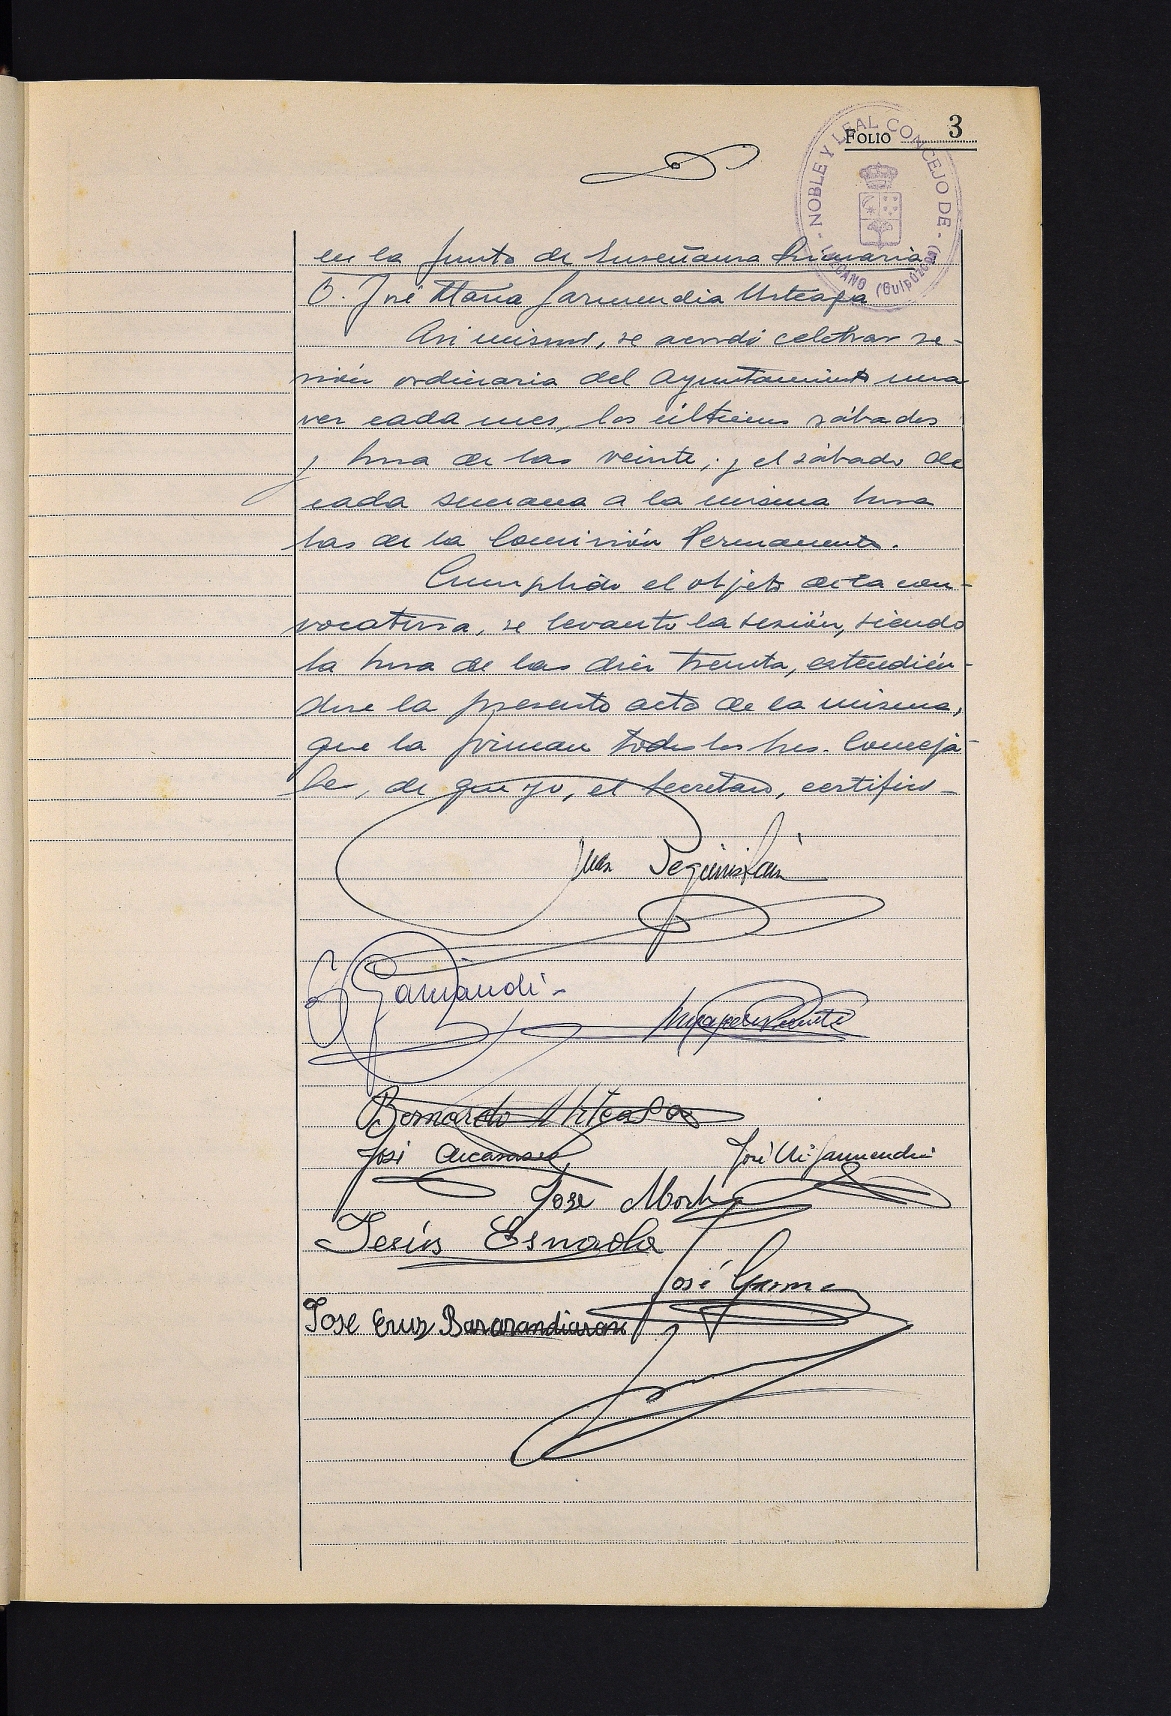 FOLIO 3
NOBLE Y LEAL CONCEJO DE
LAZCANO (Guipúzcoa)
en la Junta de Enseñanza Primaria
D. José María Garmendia Urteaga
Asi mismo, se acordó celebrar se-
sión ordinaria del Ayuntamiento una
vez cada mes, los últimos sábados
y hora de las veinte; y el sábado de
cada semana a la misma hora
las de la Comisión Permanente.
Cumplido el objeto de la con-
vocatoria, se levanto la sesión, siendo
la hora de las diez treinta, extendién-
dose la presente acta de la misma,
que la firman todos los Sres. Conceja-
les, de que yo, el Secretario, certifico -
Juan Beguiristain
Garmendi-
Bernardo Urteaga
José
José Mª Garmendia
Jose
Jesús Esnaola
José
Jose Cruz Barandiaran